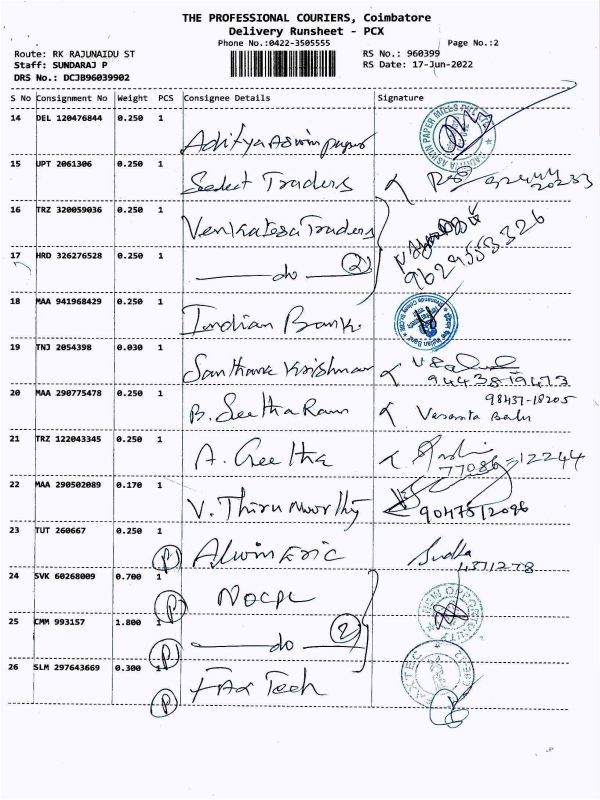 THE PROFESSIONAL COURIERS, Coimbatore
Delivery Runsheet - PCX
Phone No.:0422-3505555
Page No.:2
Route: RK RAJUNAIDU ST
RS No.: 960399
Staff: SUNDARAJ P
RS Date: 17-Jun-2022
DRS No.: DCJB96039902
S No Consignment No Weight PCS Consignee Details Signature
14 DEL 120476844 0.250 1 Aditya Aswin paper
15 UPT 2061306 0.250 1 Select Traders
16 TRZ 320059036 0.250 1 Venkatesa Traders
17 HRD 326276528 0.250 1 do 2
9629553326
18 MAA 941968429 0.250 1 Indian Bank
19 TNJ 2054398 0.030 1 Santhana Krishnan
20 MAA 290775478 0.250 1 B. Seetha Ram
98437-18205
Vasanta Balu
21 TRZ 122043345 0.250 1 A. Geetha
22 MAA 290502089 0.170 1 V. Thiru Moorthy
23 TUT 260667 0.250 1 P Alwin Eric Sudha
24 SVK 60268009 0.700 1 P NOCPL
25 CMM 993157 1.800 1 P do 2
26 SLM 297643669 0.300 1 P Tech